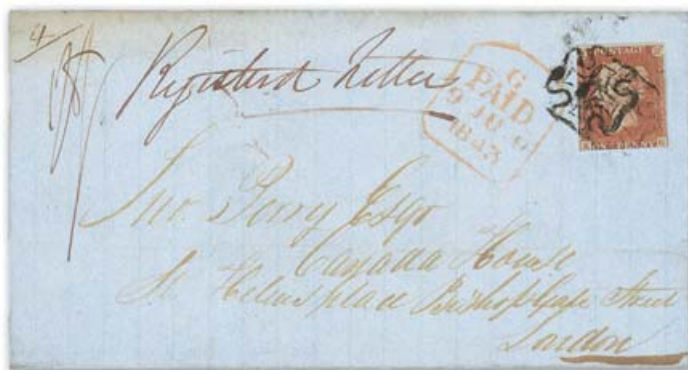 4
Registered Letter
G
PAID
9 JU 9
1843
POSTAGE
ONE PENNY
Jno. Perry Esqr
Canada House
St. Helens place Bishopsgate Street
London